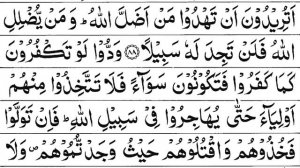 اَتُرِيْدُوْنَ اَنْ تَهْدُوْا مَنْ اَضَلَّ اللّٰهُ ؕ وَمَنْ يُّضْلِلِ
اللّٰهُ فَلَنْ تَجِدَ لَهٗ سَبِيْلًا ﴿۸۸﴾ وَدُّوْا لَوْ تَكْفُرُوْنَ
كَمَا كَفَرُوْا فَتَكُوْنُوْنَ سَوَآءً فَلَا تَتَّخِذُوْا مِنْهُمْ
اَوْلِيَآءَ حَتّٰى يُهَاجِرُوْا فِىْ سَبِيْلِ اللّٰهِ ؕ فَاِنْ تَوَلَّوْا
فَخُذُوْهُمْ وَاقْتُلُوْهُمْ حَيْثُ وَجَدْتُّمُوْهُمْ ۪ وَلَا